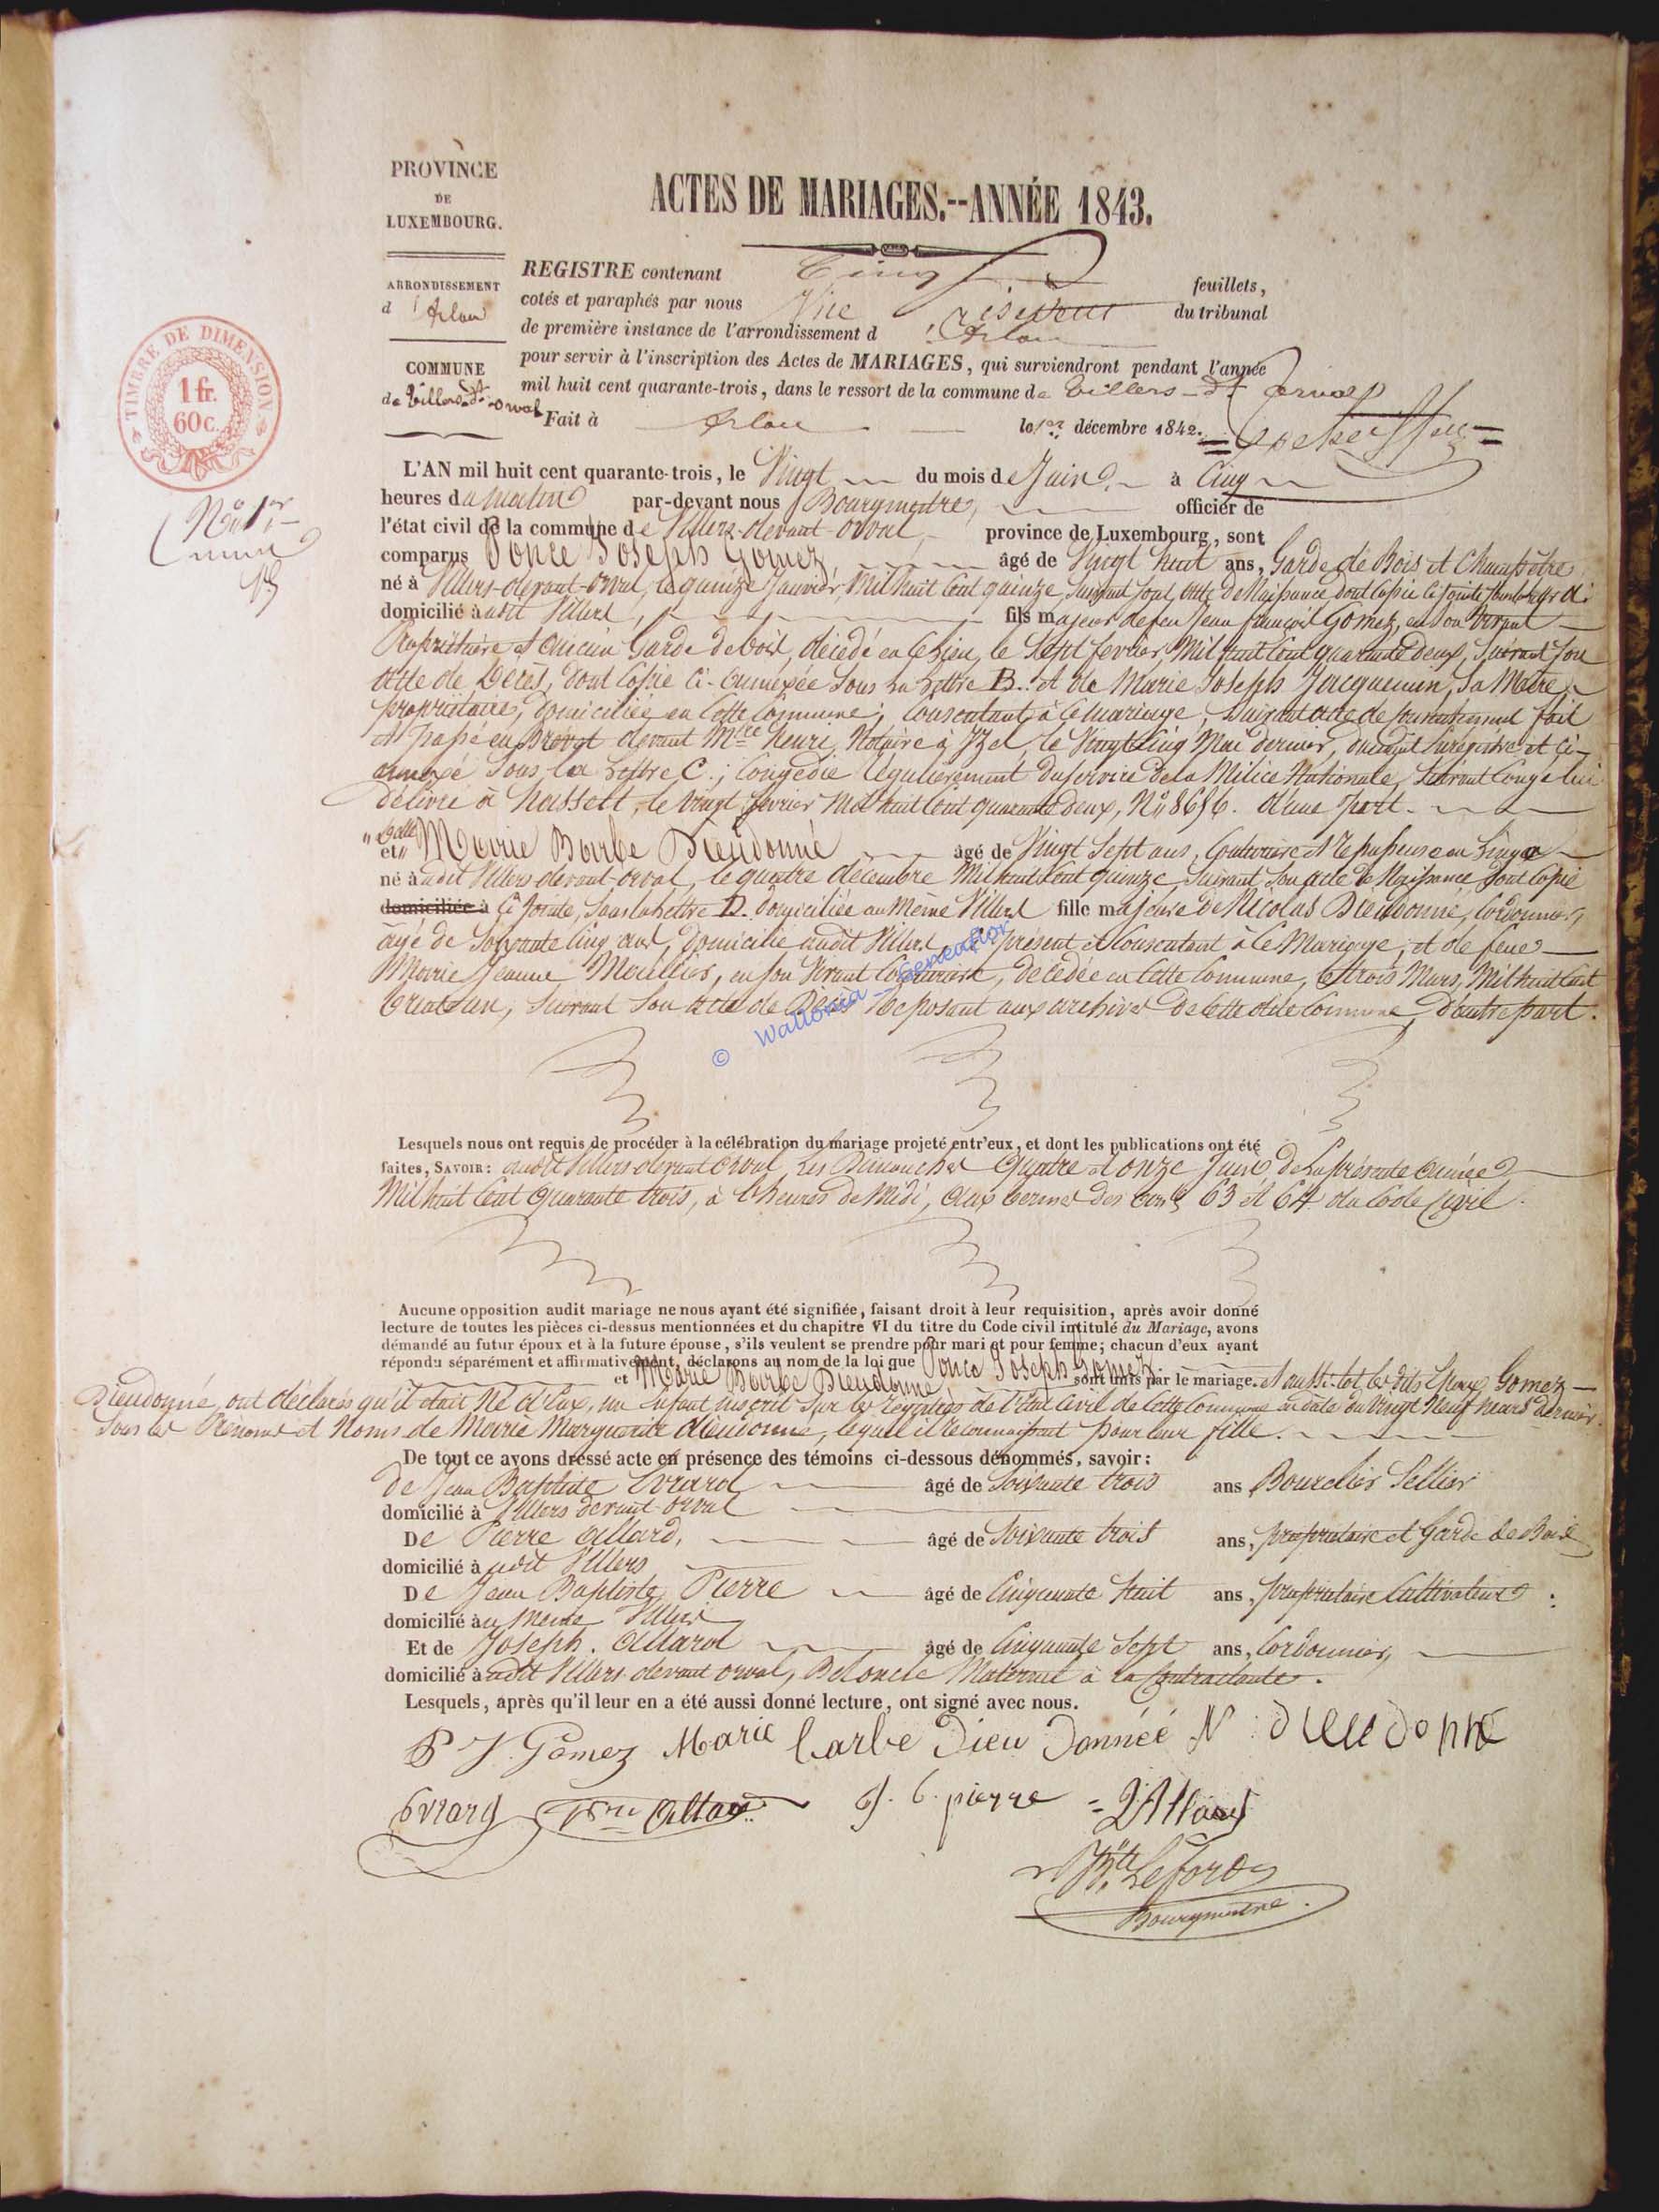 PROVINCE
DE
LUXEMBOURG.
ACTES DE MARIAGES.--ANNÉE 1843.
ARRONDISSEMENT
d'Arlon
REGISTRE contenant Cinq feuillets,
cotés et paraphés par nous Vice Président du tribunal
de première instance de l'arrondissement d'Arlon
pour servir à l'inscription des Actes de MARIAGES, qui surviendront pendant l'année
mil huit cent quarante-trois, dans le ressort de la commune de Villers-dt-orval
COMMUNE
de Villers-dt-orval
Fait à Arlon le 1er décembre 1842.
TIMBRE DE DIMENSION
1 fr.
60 c.
No 1er
L'AN mil huit cent quarante-trois, le Vingt du mois de Juin à Cinq
heures du matin par-devant nous Bourgmestre, officier de
l'état civil de la commune de Villers-devant-orval, province de Luxembourg, sont
comparus Ponce Joseph Gomez, âgé de Vingt huit ans, Garde de Bois et Champêtre
né à Villers-devant-orval, le quinze Janvier Mil huit Cent quinze, Suivant Son acte de Naissance dont Copie Ci jointe
domicilié audit Villers, fils majeur de feu Jean françois Gomez, en Son Vivant
Propriétaire et ancien Garde de bois, décédé en Ce lieu, le Sept fevrier, Mil huit Cent quarante deux, Suivant Son
acte de Décès, dont Copie Ci-annexée Sous la Lettre B. et de Marie Joseph Jacquemin, Sa Mère,
propriétaire, domiciliée en Cette Commune, Consentant à Ce Mariage, Suivant acte de Consentement fait
et passé en Brevet devant Mtre henri, Notaire à Izel, le Vingt Cinq Mai dernier, duement Enregistré et Ci-
annexé Sous la Lettre C.; Congédié régulièrement du Service de la Milice Nationale, Suivant Congé lui
délivré à hasselt, le Vingt fevrier Mil huit Cent quarante deux, No 8656. d'une part.
et Marie Barbe Dieudonné âgé de Vingt Sept ans, Couturière et repasseuse en Linge
né audit Villers devant orval, le quatre décembre Mil huit Cent quinze, Suivant Son acte de Naissance dont Copie
domiciliée à Ci Jointe, Sous la Lettre D. domiciliée au Même Villers fille majeure de Nicolas Dieudonné, Cordonnier,
âgé de Soixante Cinq ans, domicilié audit Villers, Ci présent et Consentant à Ce Mariage; et de feue
Marie Jeanne, en Son Vivant Couturière, décédée en Cette Commune, le trois Mars, Mil huit Cent
trente un, Suivant Son acte de Décès reposant aux archives de Cette dite Commune, d'autre part.
© Wallonia - Geneaflor
Lesquels nous ont requis de procéder à la célébration du mariage projeté entr'eux, et dont les publications ont été
faites, SAVOIR: audit Villers devant Orval, Les Dimanches Quatre et onze Juin de la présente année
Mil huit Cent Quarante trois, à l'heures de Midi, Aux termes des arts 63 et 64 du Code Civil.
Aucune opposition audit mariage ne nous ayant été signifiée, faisant droit à leur requisition, après avoir donné
lecture de toutes les pièces ci-dessus mentionnées et du chapitre VI du titre du Code civil intitulé du Mariage, avons
démandé au futur époux et à la future épouse, s'ils veulent se prendre pour mari et pour femme; chacun d'eux ayant
répondu séparément et affirmativement, déclarons au nom de la loi que Ponce Joseph Gomez
et Marie Barbe Dieudonné sont unis par le mariage. et aussi-tôt les dits Epoux Gomez-
Dieudonné, ont déclarés qu'il était Né d'Eux, un Enfant inscrit Sur les Registres de l'Etat Civil de Cette Commune en date du Vingt Neuf mars dernier
Sous les Prénoms et Noms de Marie Marguerite dieudonné, lequel il reconnaissent pour leur fille.
De tout ce avons dressé acte en présence des témoins ci-dessous dénommés, savoir:
De Jean Baptiste Evrard âgé de Soixante trois ans Bourelier Sellier
domicilié à Villers devant orval
De Pierre Allard, âgé de Soixante trois ans, propriétaire et Garde de Bois
domicilié audit Villers
De Jean Baptiste Pierre âgé de Cinquante huit ans, propriétaire Cultivateur
domicilié au même Villers
Et de Joseph Allard âgé de Cinquante Sept ans, Cordonnier,
domicilié audit Villers devant orval, Bel oncle Maternel à la Contractante.
Lesquels, après qu'il leur en a été aussi donné lecture, ont signé avec nous.
P J. Gomez Marie barbe Dieu Donnée N. Dieudonné
Evrard Allard J. b. pierre J Allard
Bourgmestre